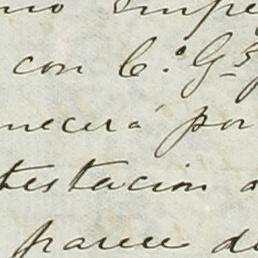 mo impe
con C.º G.s
necerá por
testacion a
parece de